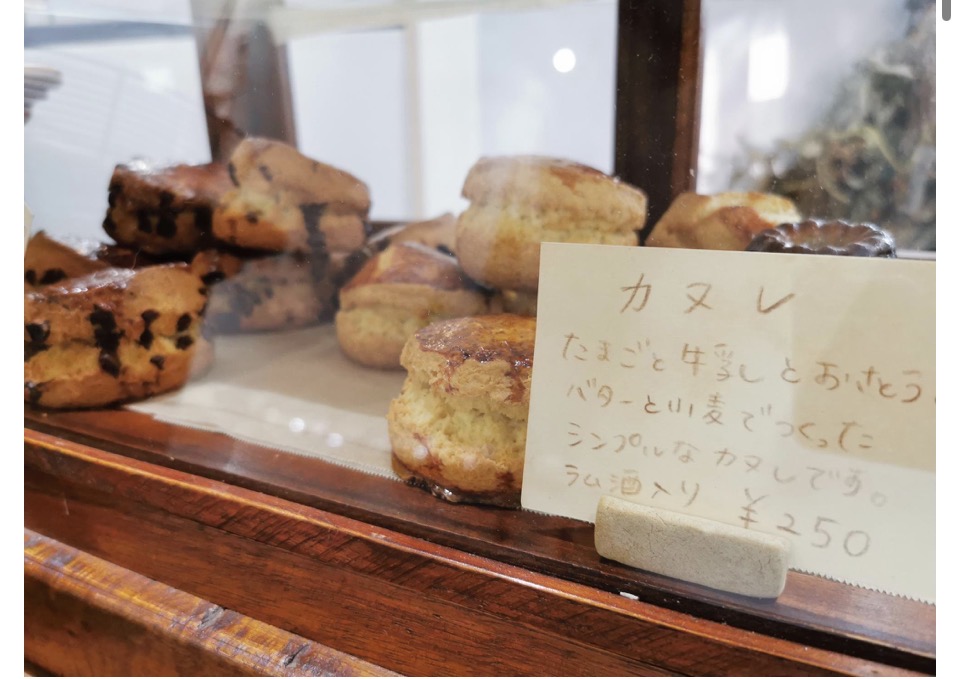 カヌレ
たまごと牛乳とおさとう、
バターと小麦でつくった
シンプルなカヌレです。
ラム酒入り ¥250